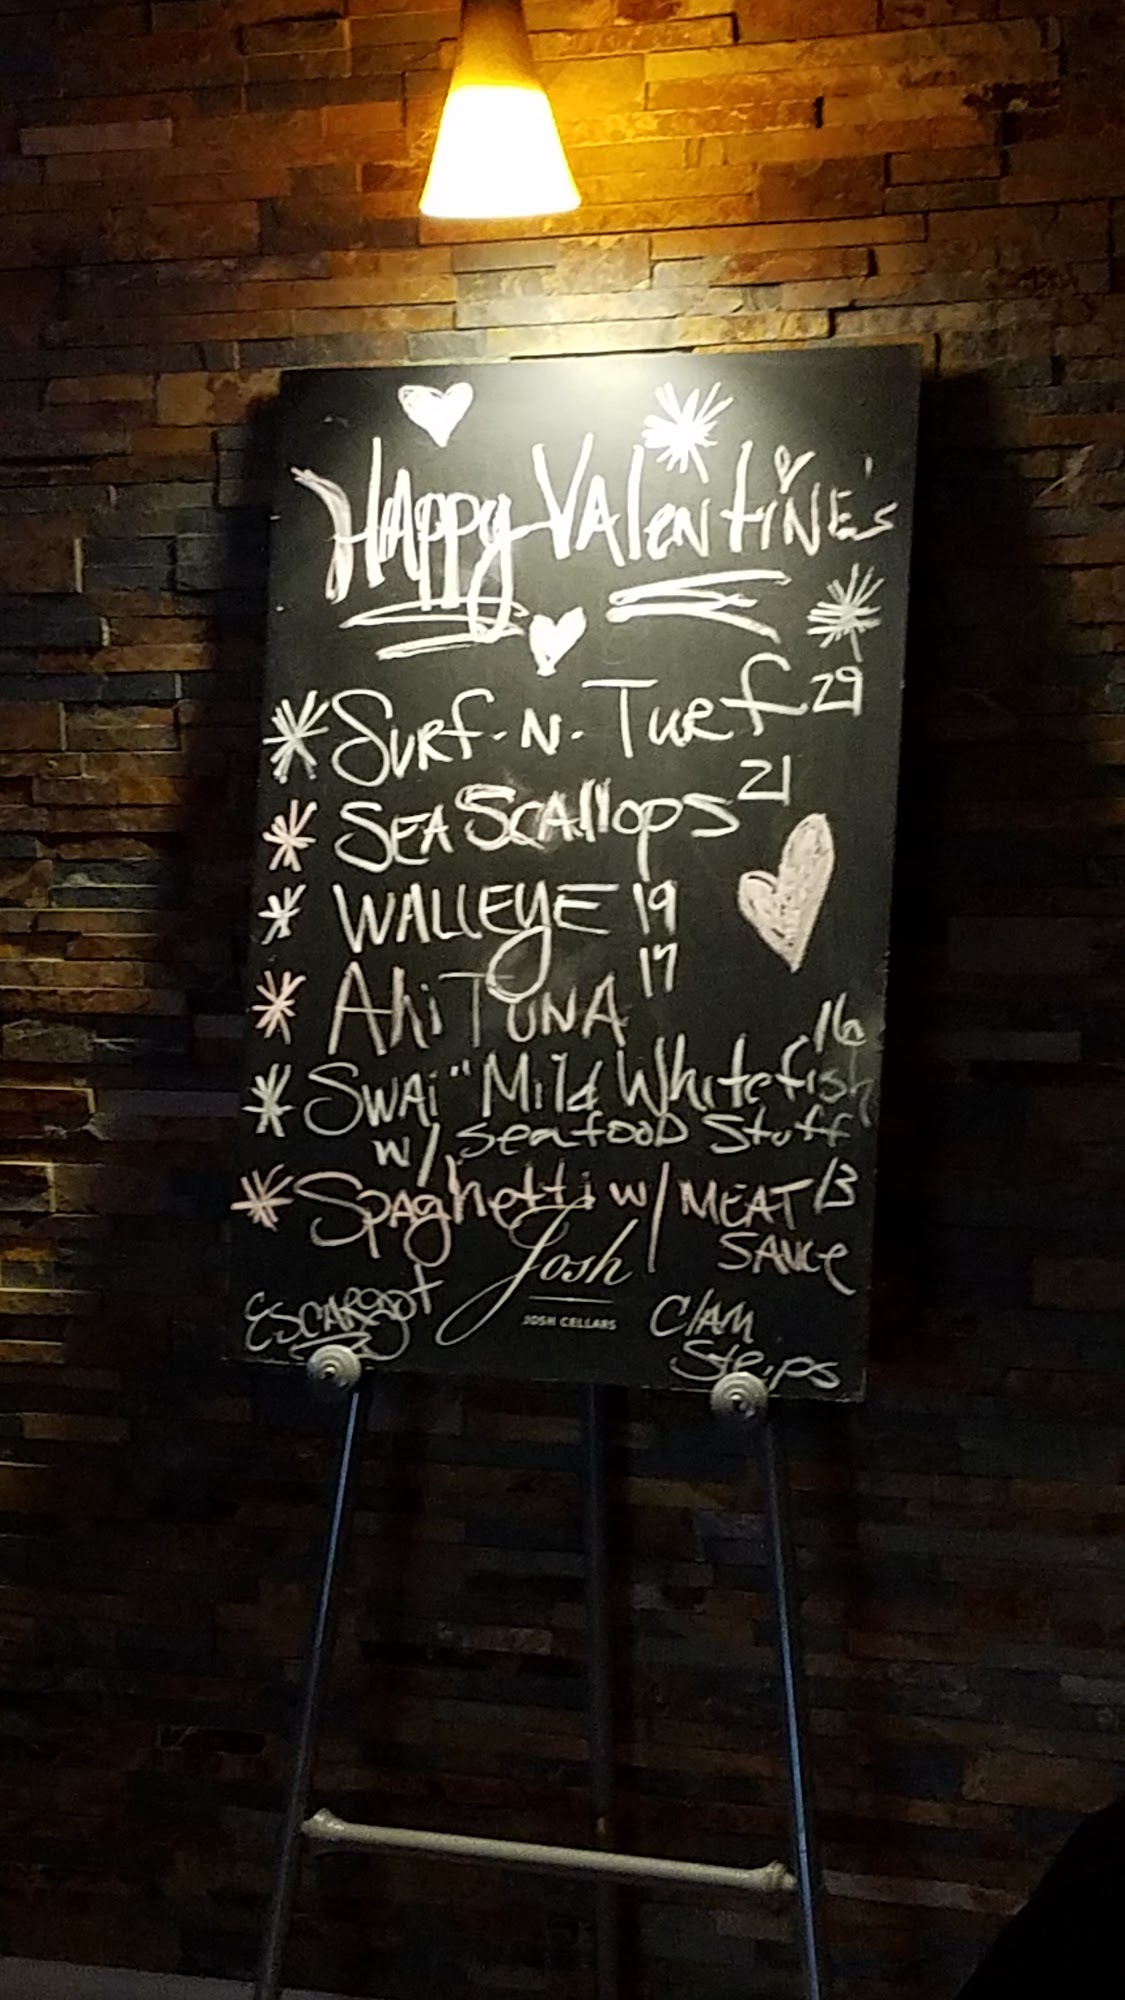 Happy Valentine's
Surf-N-Turf 29
Sea Scallops 21
Walleye 19
Ahi Tuna 17
Swai "Mild Whitefish 16
w/ Seafood Stuff
Spaghetti w/ Meat 13
Sauce
Josh
JOSH CELLARS
Escargot
Clam
Strips